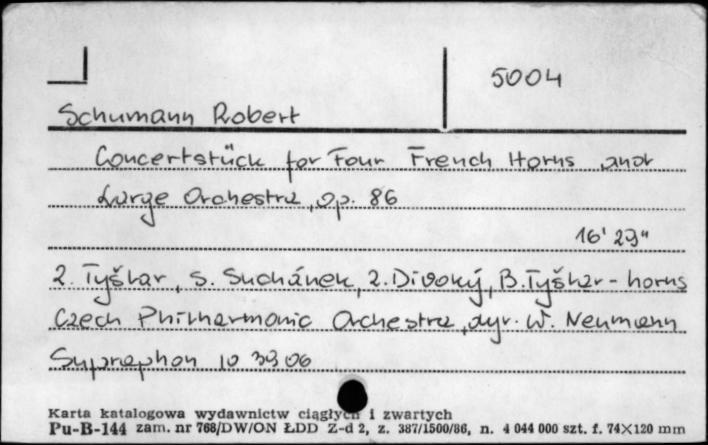 5004
Schumann Robert
Concertstück for Four French Horns and
Large Orchestra, op. 86
16' 29"
Z. Tyšlar, S. Suchánek, Z. Divoký, B. Tyšlar - horns
Czech Philharmonic Orchestra, dyr. W. Neumann
Supraphon 10 3306
Karta katalogowa wydawnictw ciągłych i zwartych
Pu-B-144 zam. nr 768/DW/ON ŁDD Z-d 2, z. 387/1500/86, n. 4 044 000 szt. f. 74×120 mm